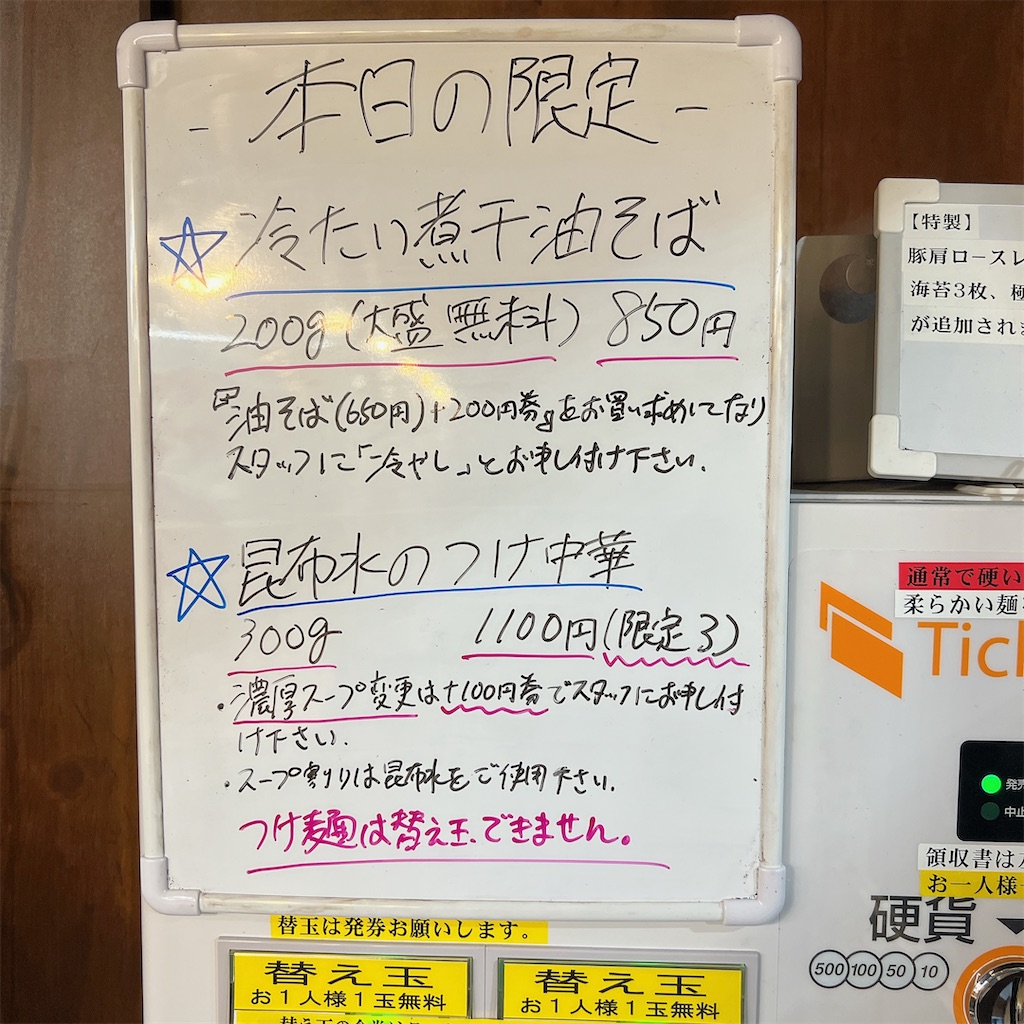 - 本日の限定 -
☆冷たい煮干油そば
200g(大盛無料) 850円
油そば(650円)+200円券をお買い求めしてなり
スタッフに「冷やし」とお申し付け下さい.
☆昆布水のつけ中華
300g 1100円(限定3)
・濃厚スープ変更は+100円券でスタッフにお申し付
け下さい.
・スープ割りは昆布水をご使用下さい.
つけ麺は替え玉できません。
【特製】
豚肩ロースレ
海苔3枚、極
が追加されま
通常で硬い
柔らかい麺
Tic
発売
中止
領収書は
お一人様
硬貨
500 100 50 10
替玉は発券お願いします。
替え玉
お1人様1玉無料
替え玉
お1人様1玉無料